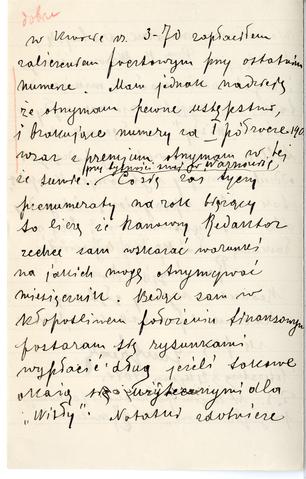 dobre
w kwocie rs. 3-70 zapłaciłem
zaliczeniem pocztowym przy ostatnim
numerze. Mam jednak nadzieję
że otrzymam pewne ustępstwo,
i brakujące numery za I półrocze 190
wraz z premjum otrzymam w tej
przy bytności swej w Warszawie
że sumie. Co się zaś tyczy
prenumeraty na rok bieżący
to liczę że Szanowny Redaktor
zechce sam wskazać warunki
na jakich mogę otrzymywać
miesięcznik. Będąc sam w
kłopotliwem położeniu finansowym
postaram się rysunkami
wypłacić dług jeżeli takowe
okażą się użytecznymi dla
"Wisły". Notatki